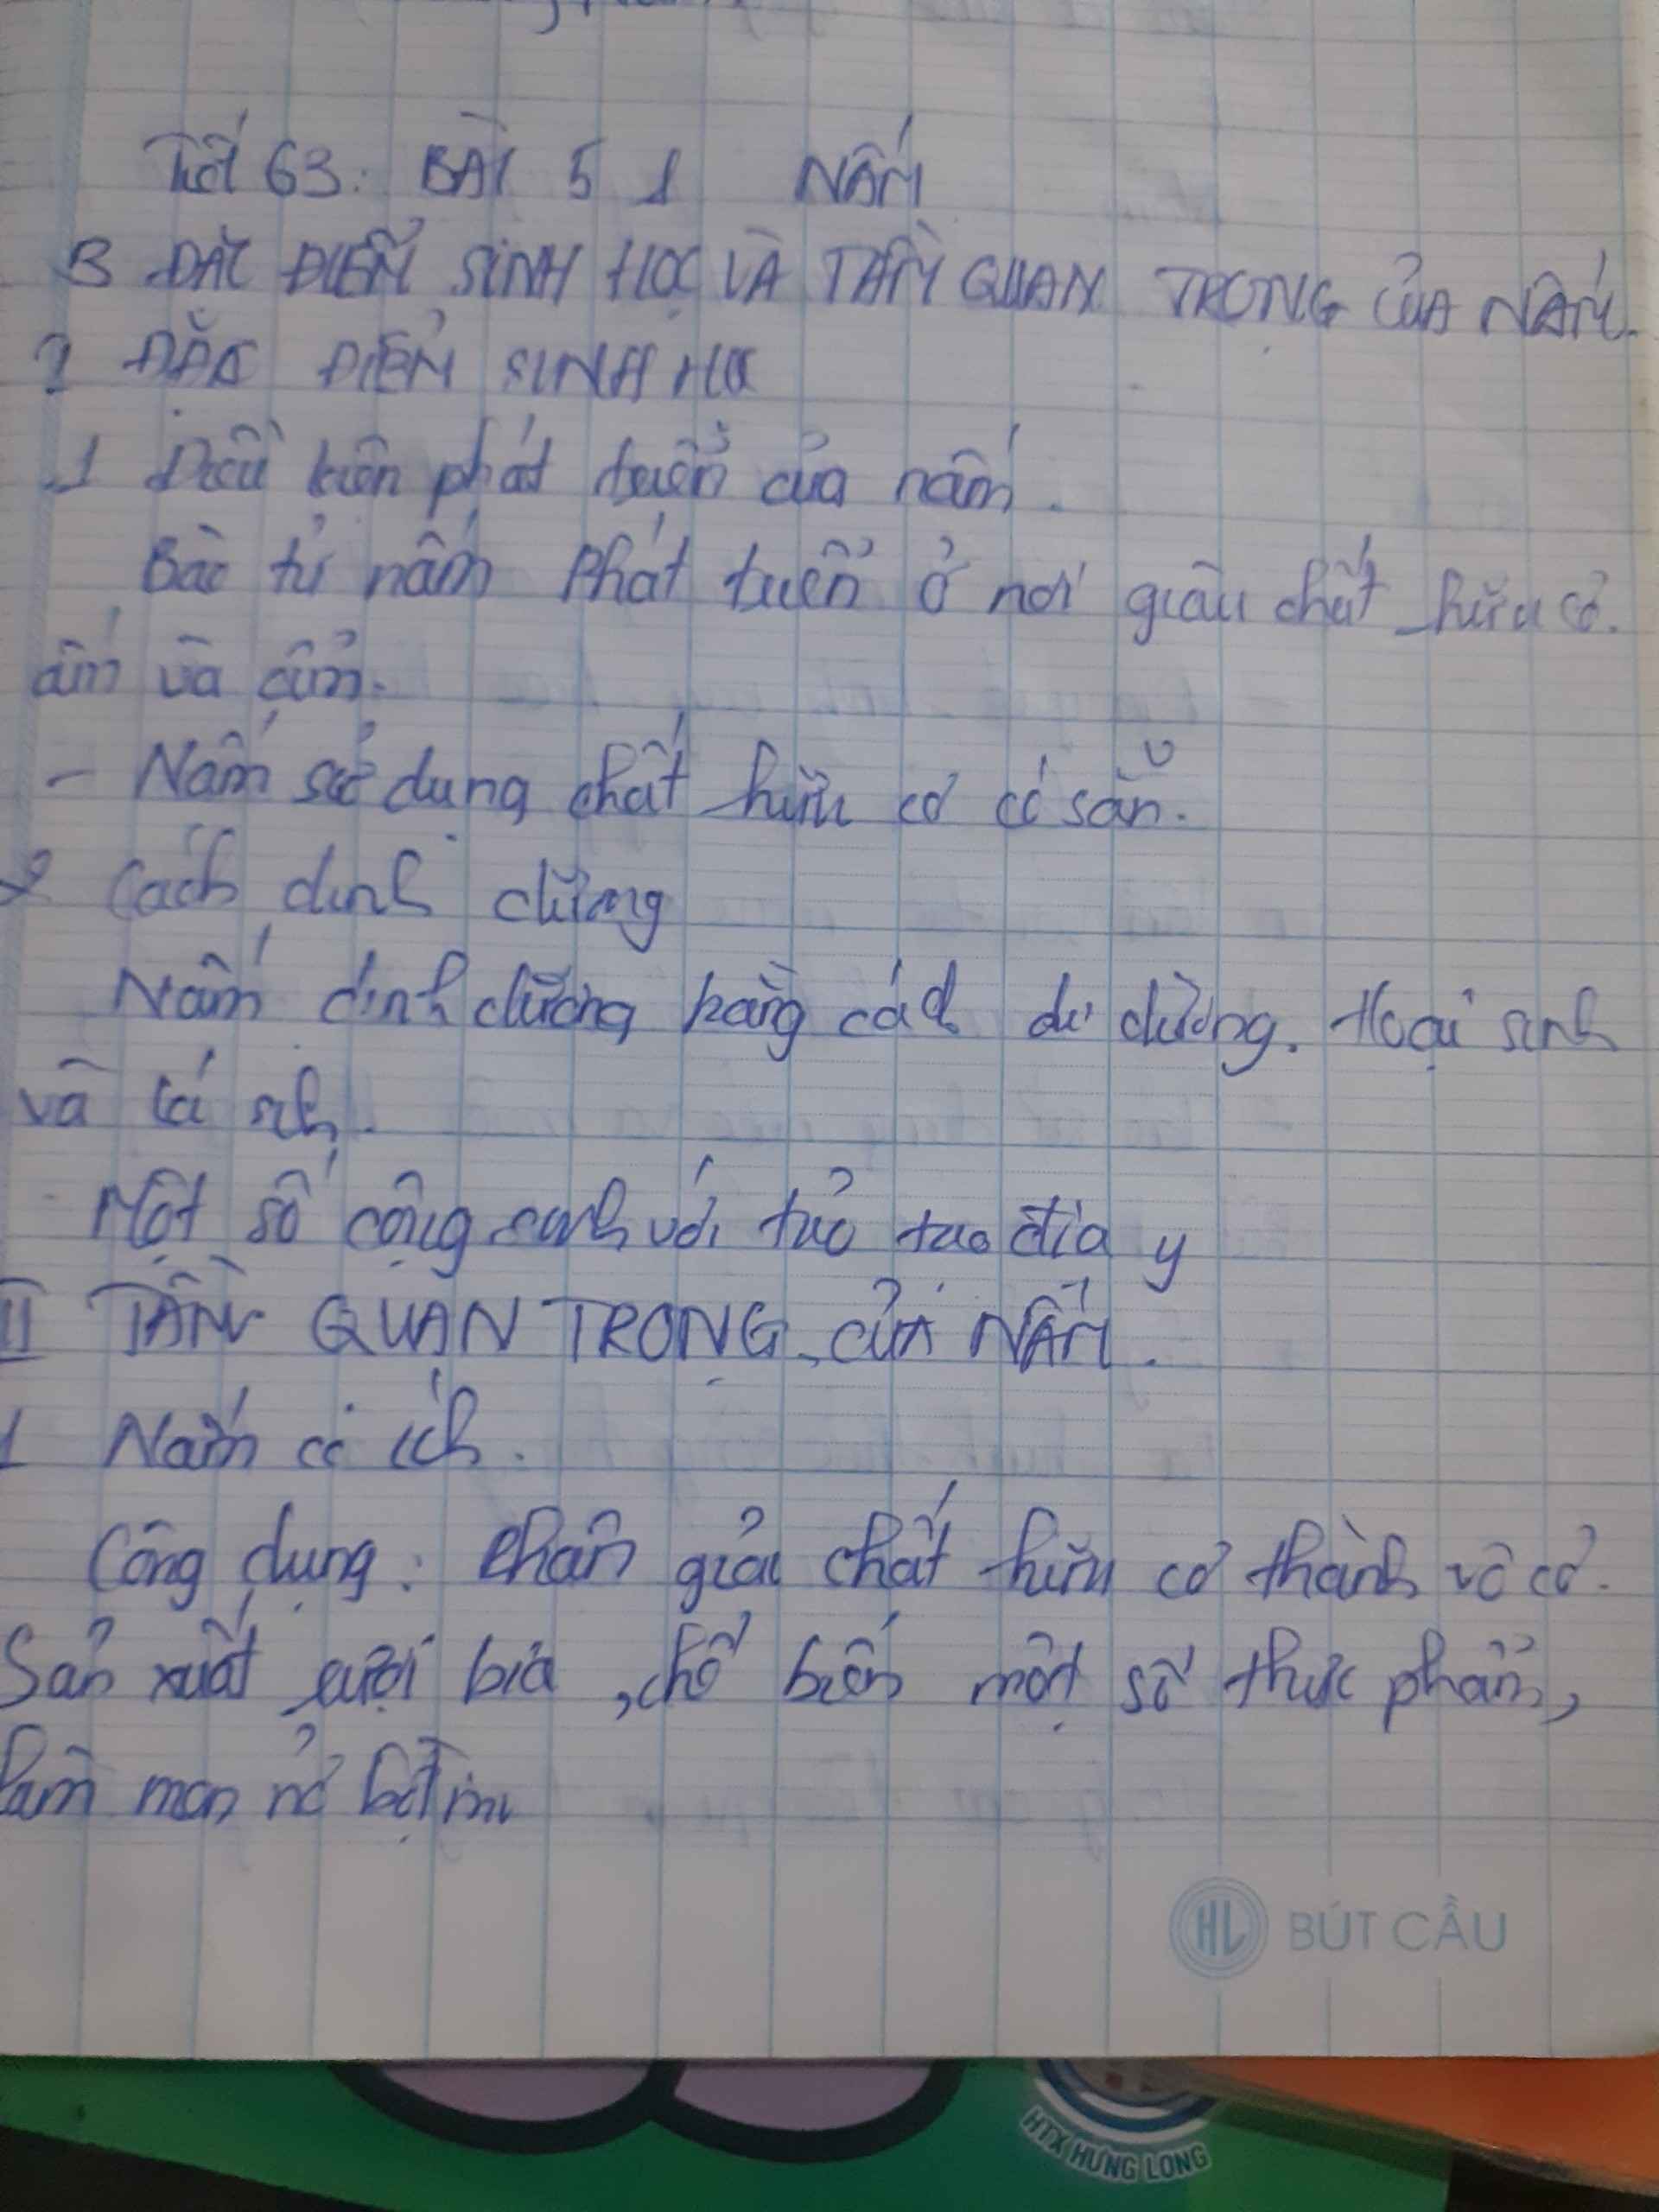 Tiết 63: BÀI 51 NẤM
B ĐẶC ĐIỂM SINH HỌC VÀ TẦM QUAN TRỌNG CỦA NẤM.
I ĐẶC ĐIỂM SINH HỌC
1 Điều kiện phát triển của nấm.
Bào tử nấm phát triển ở nơi giàu chất hữu cơ.
ấm và ẩm.
- Nấm sử dụng chất hữu cơ có sẵn.
2 Cách dinh dưỡng
Nấm dinh dưỡng bằng cách dị dưỡng. Hoại sinh
và kí sinh.
Một số cộng sinh với tảo tạo địa y
II TẦM QUAN TRỌNG CỦA NẤM.
1 Nấm có ích.
Công dụng: Phân giải chất hữu cơ thành vô cơ.
Sản xuất rượi bia, chế biến một số thực phẩm,
làm men nở bột mì
HL BÚT CẦU
HTX HƯNG LONG